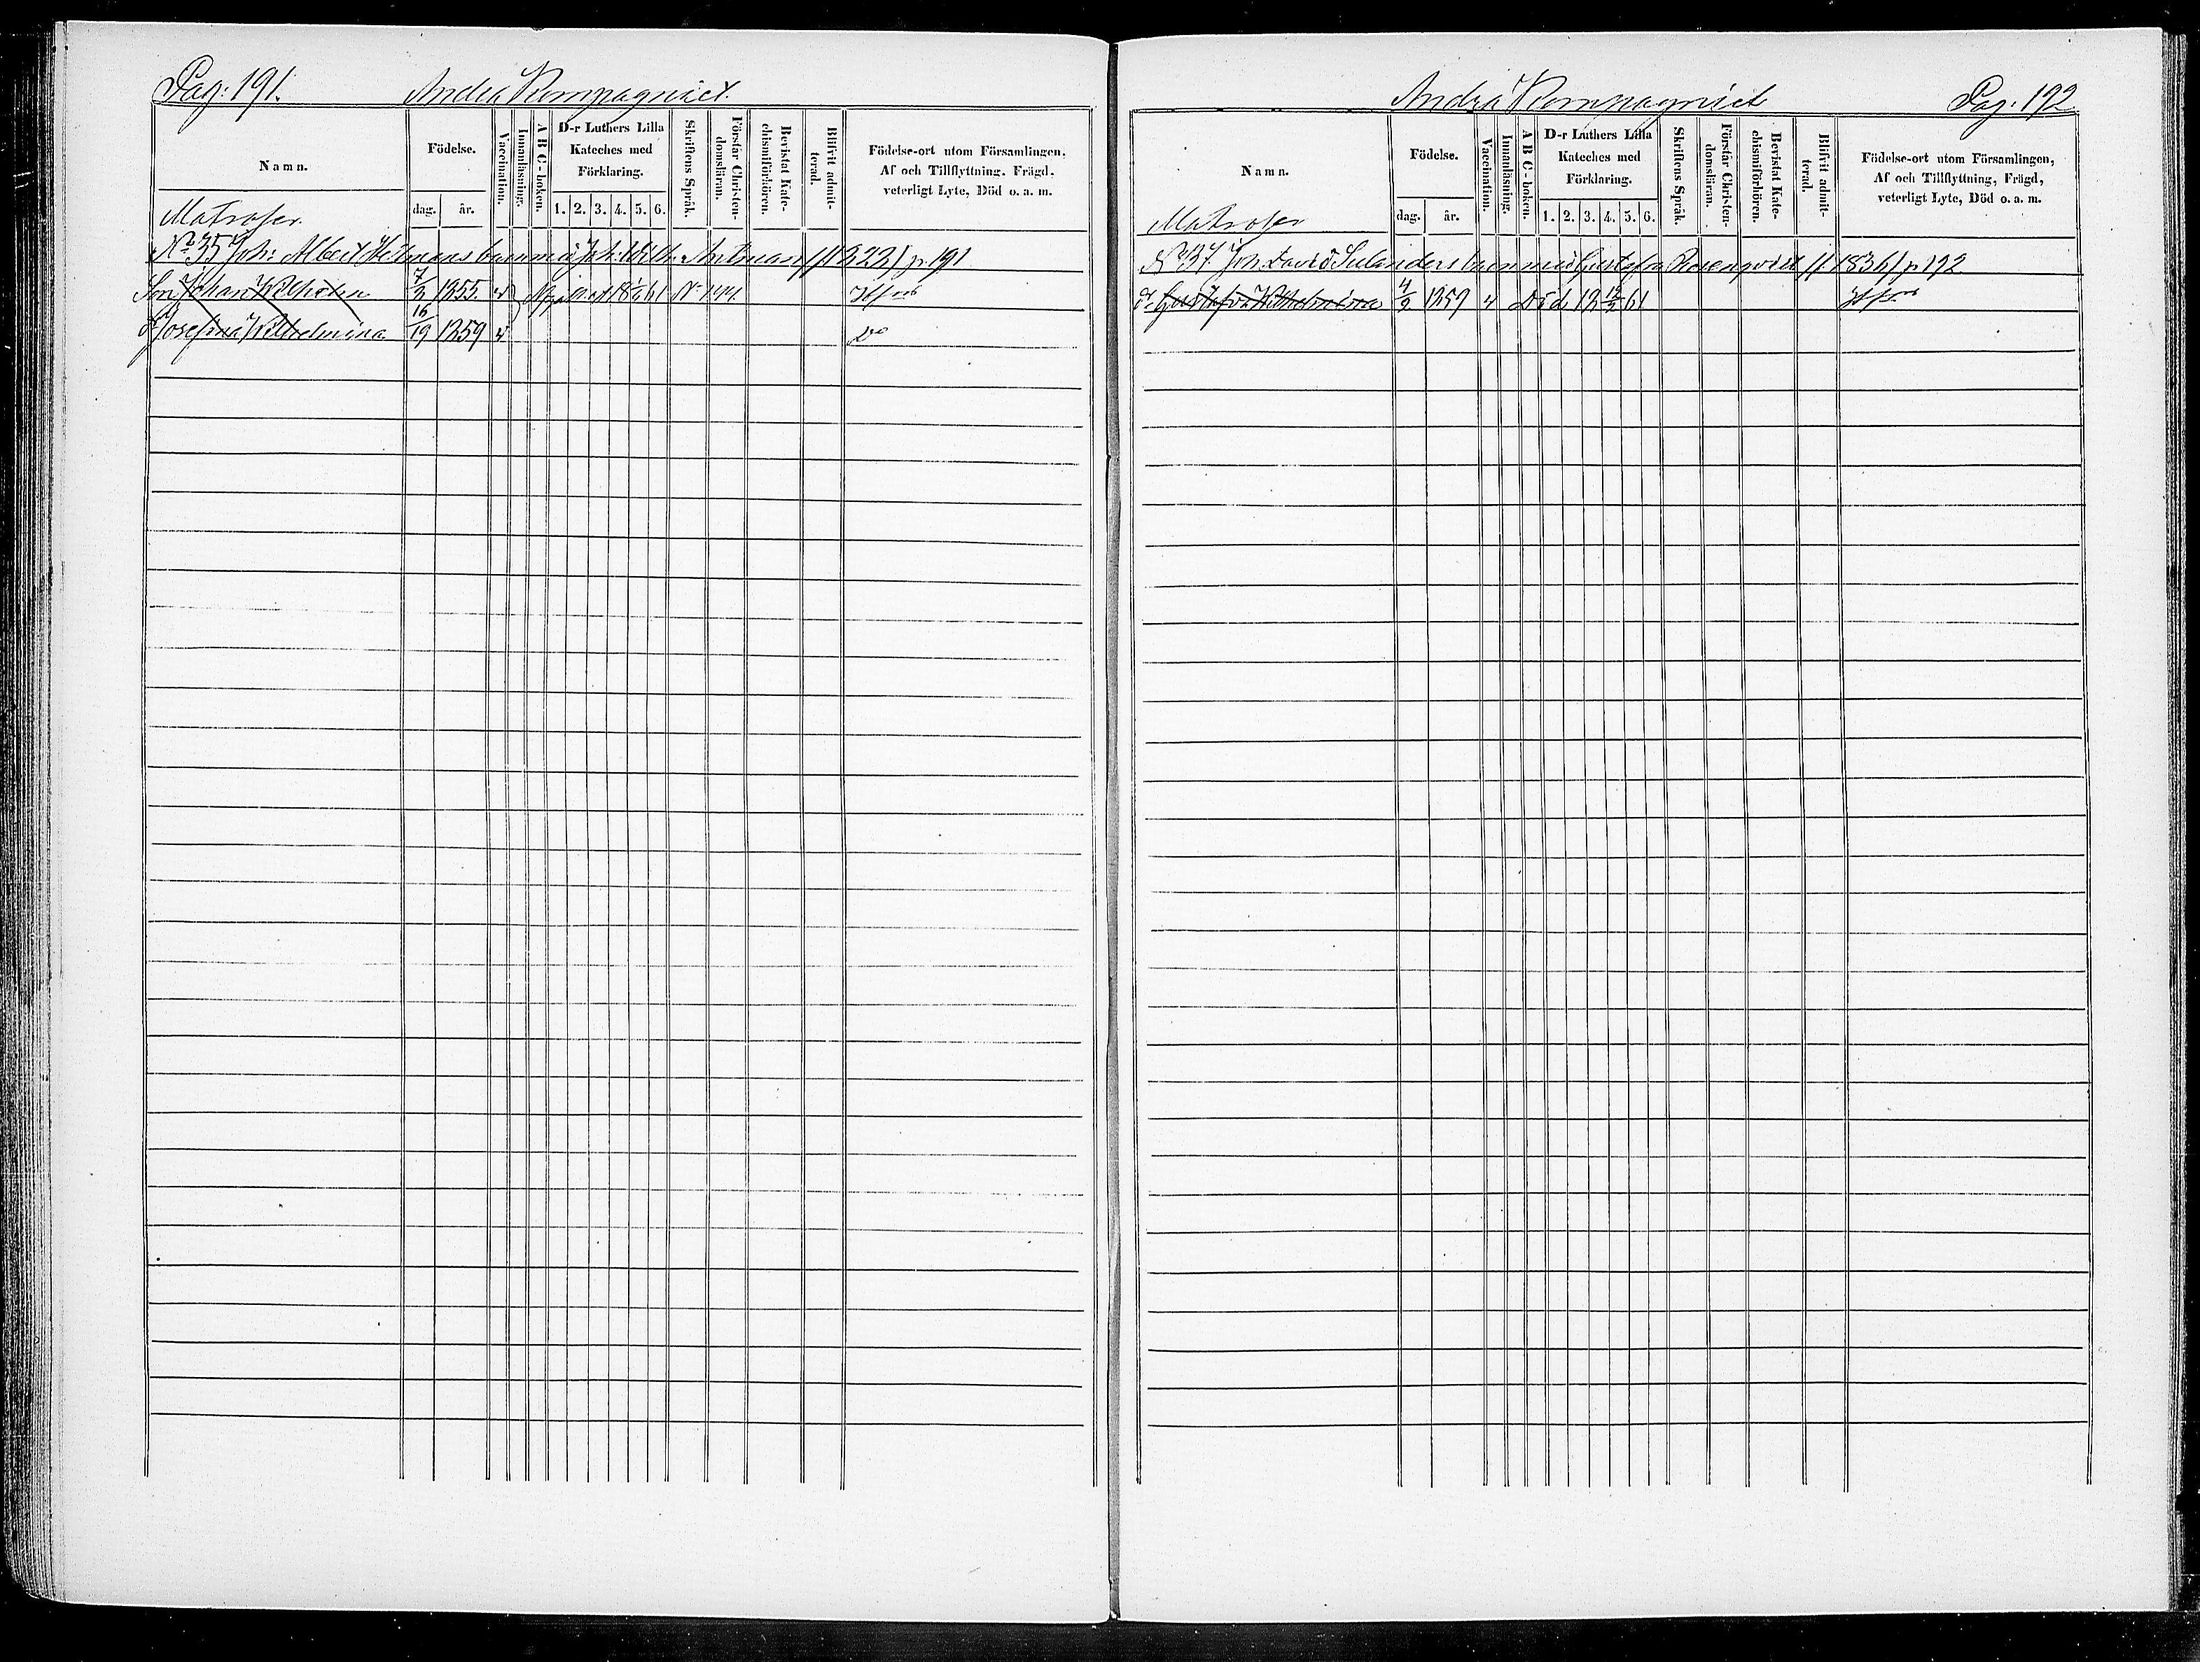 Pag: 191.
Andra Kompagniet.
Namn.
Födelse.
dag.
år.
Vaccination.
Innanläsning.
A B C - boken.
D-r Luthers Lilla
Kateches med
Förklaring.
1. 2. 3. 4. 5. 6.
Skriftens Språk.
Förstår Christen-
domsläran.
Bevistat Kate-
chismiförhören.
Blifvit admit-
terad.
Födelse-ort utom Församlingen,
Af och Tillflyttning, Frägd,
veterligt Lyte, Död o. a. m.
Matroser
No 35 Joh: Albert barn med p. 191
Son Johan Wilhelm 7/2 1855. v H:fors
d Josefina Wilhelmina 16/19 1859 v Do
Andra Kompagniet
Pag. 192
Namn.
Födelse.
dag.
år.
Vaccination.
Innanläsning.
A B C - boken.
D-r Luthers Lilla
Kateches med
Förklaring.
1. 2. 3. 4. 5. 6.
Skriftens Språk.
Förstår Christen-
domsläran.
Bevistat Kate-
chismiförhören.
Blifvit admit-
terad.
Födelse-ort utom Församlingen,
Af och Tillflyttning, Frägd,
veterligt Lyte, Död o. a. m.
Matroser
No 37 Joh. David Selanders barn med Gustafva Rosenqvist f. 1836 p 192
d. Gustafva Wilhelmina 4/9 1857 v Död 18 12/2 61 H:fors